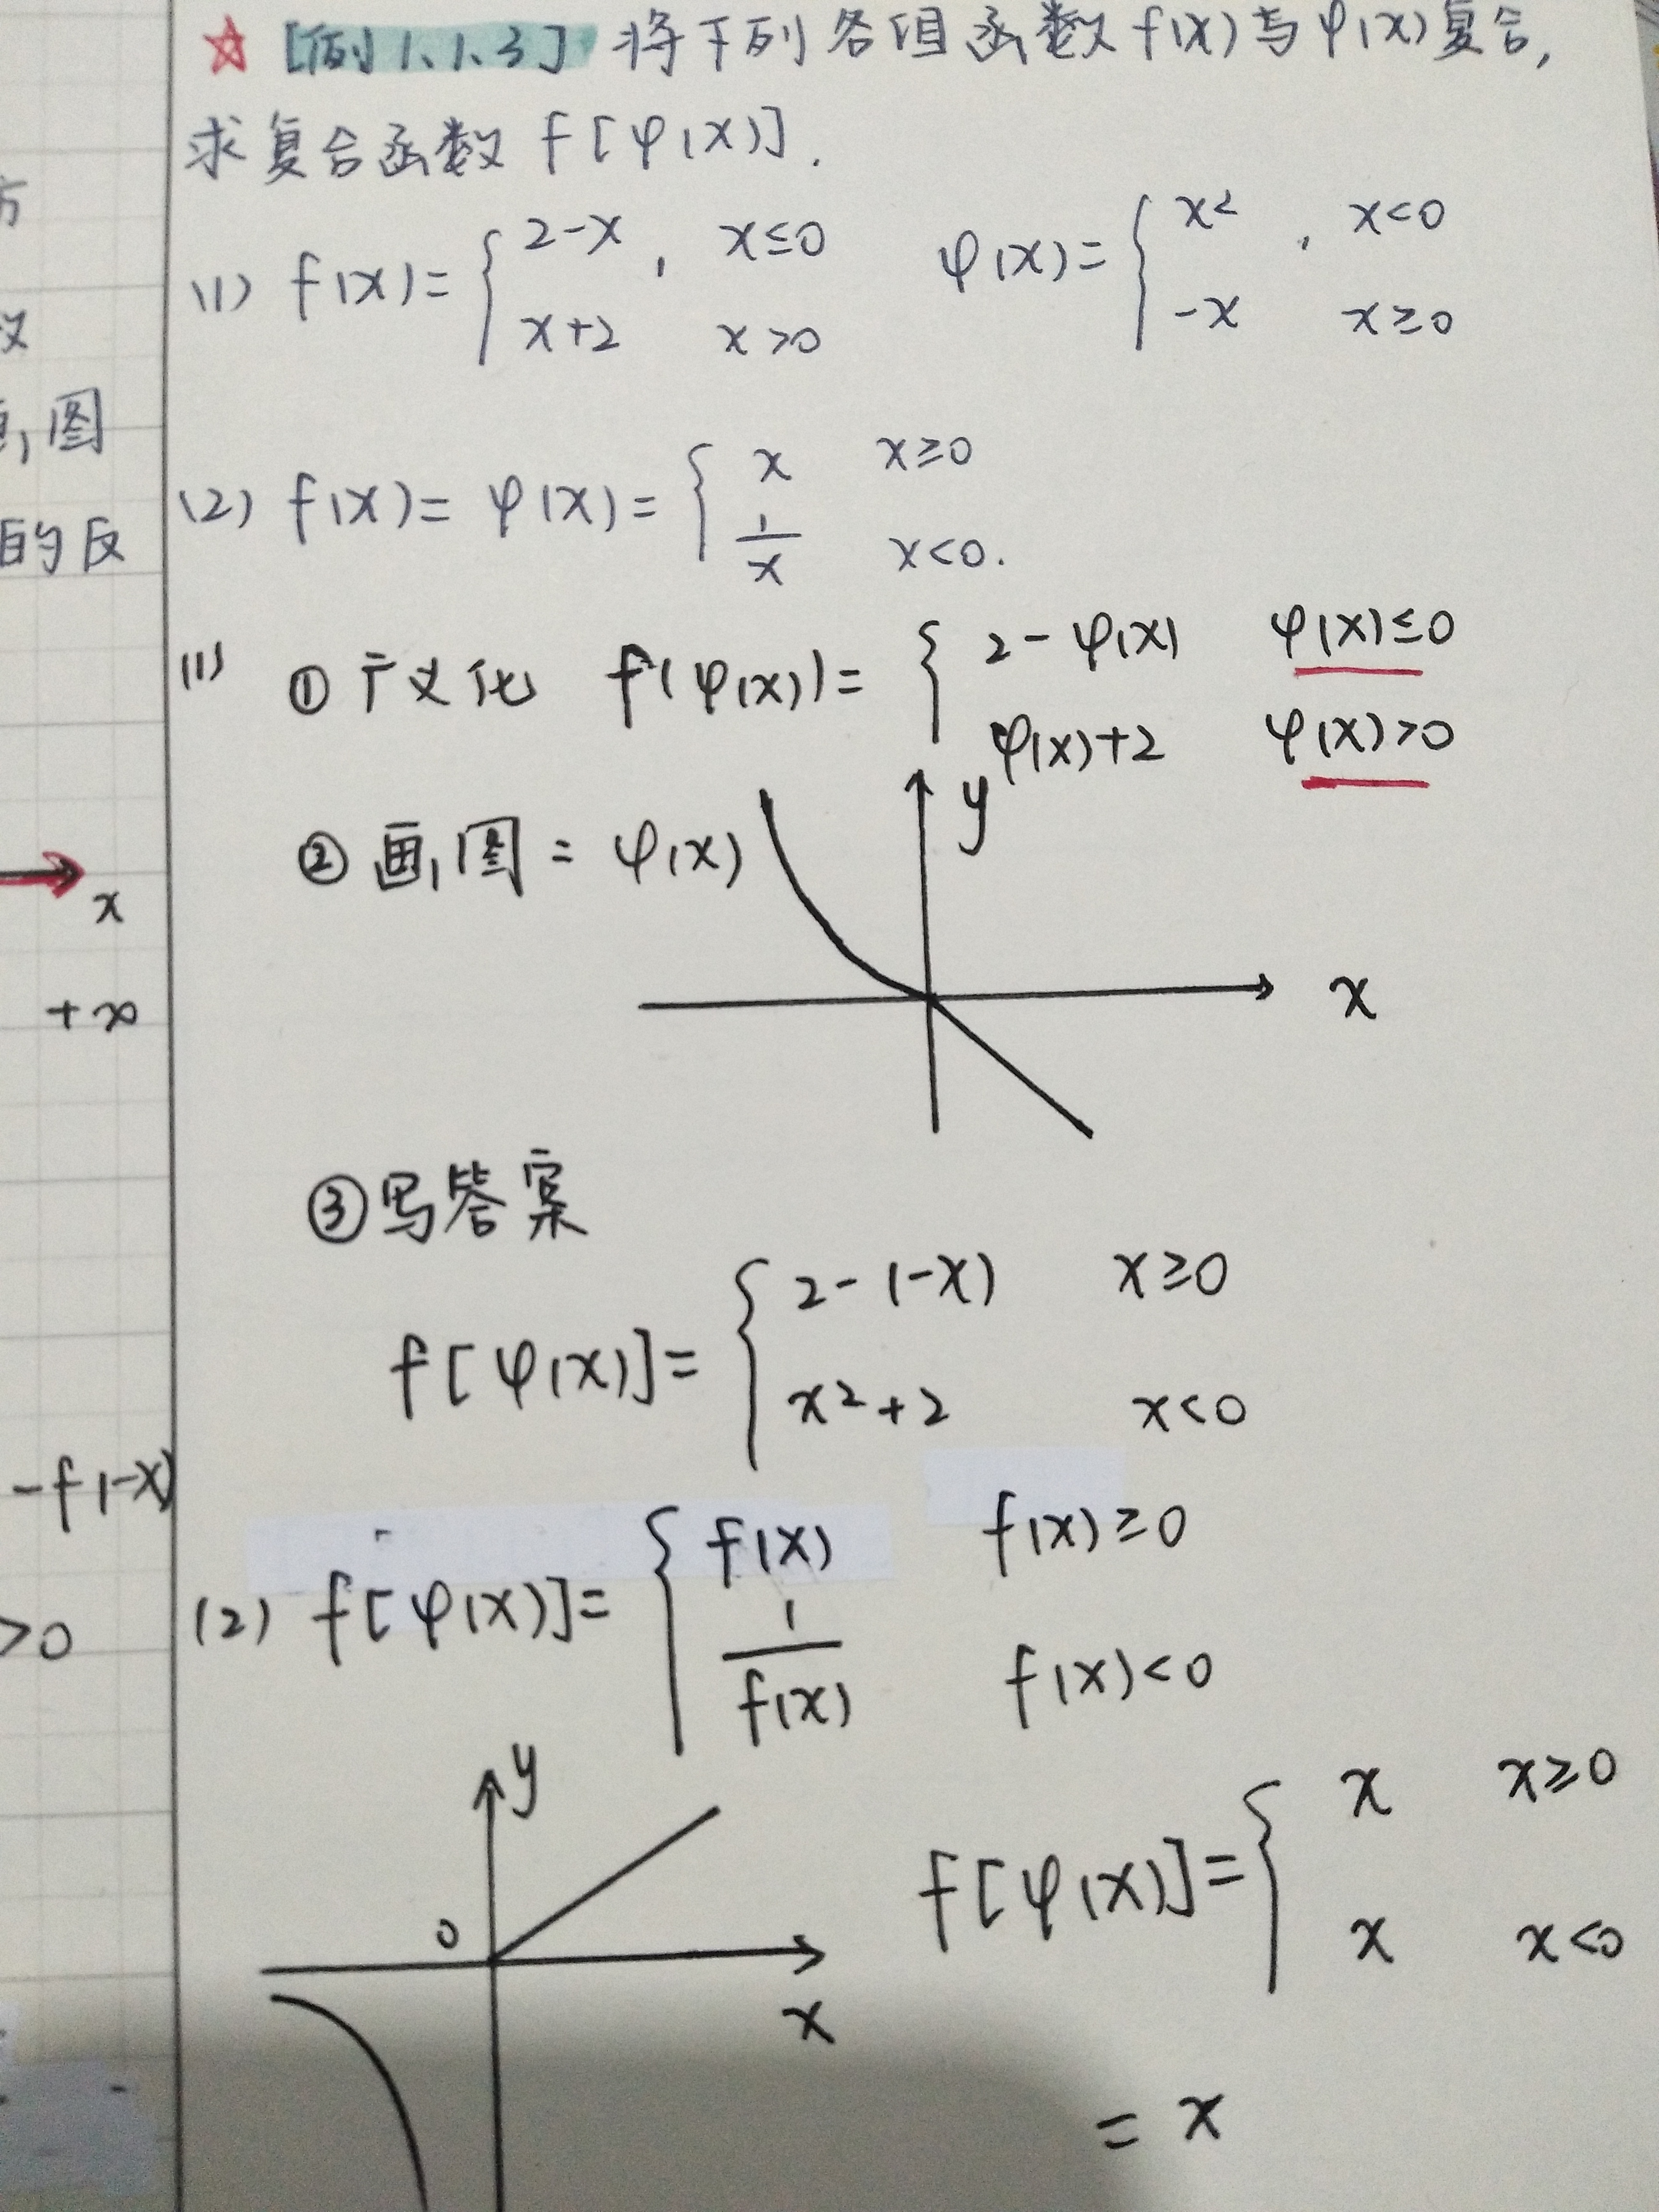 ☆ [例1.1.3] 将下列各组函数f(x)与φ(x)复合,
求复合函数 f[φ(x)].
方
(1) f(x)= { 2-x , x≤0
x+2 x>0
φ(x)= { x² , x<0
-x x≥0
义
画,图
(2) f(x)= φ(x)= { x x≥0
1/x x<0.
的反
(1) ① 广义化 f(φ(x))= { 2-φ(x) φ(x)≤0
φ(x)+2 φ(x)>0
② 画图 = φ(x) y
x
x
+∞
③写答案
f[φ(x)]= { 2-(-x) x≥0
x²+2 x<0
-f(-x)
(2) f[φ(x)]= { f(x) f(x)≥0
1/f(x) f(x)<0
>0
y
0
x
f[φ(x)]= { x x≥0
x x<0
= x